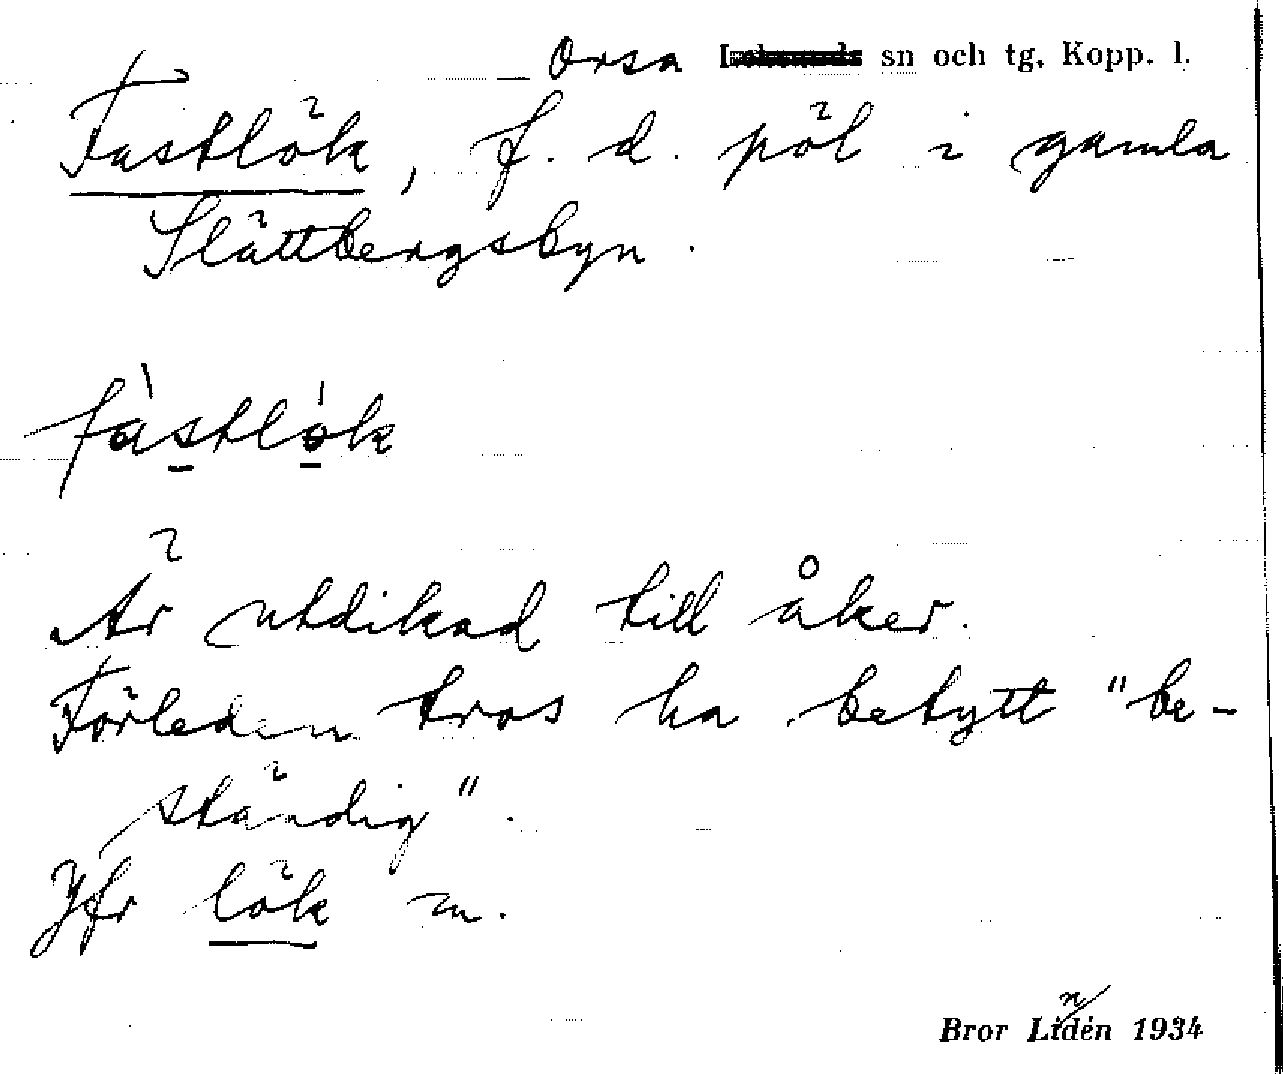 Orsa sn och tg, Kopp. l.
Fastlök, f. d. pöl i gamla
Slättbergsbyn.
fàstlók
Är utdikad till åker.
Förleden tros ha betytt "be-
ständig".
Jfr lök m.
n/
Bror Lidén 1934